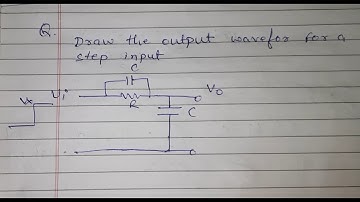 Q. Draw the output wavefor for a
step input
C
Vi
V₀
R
C